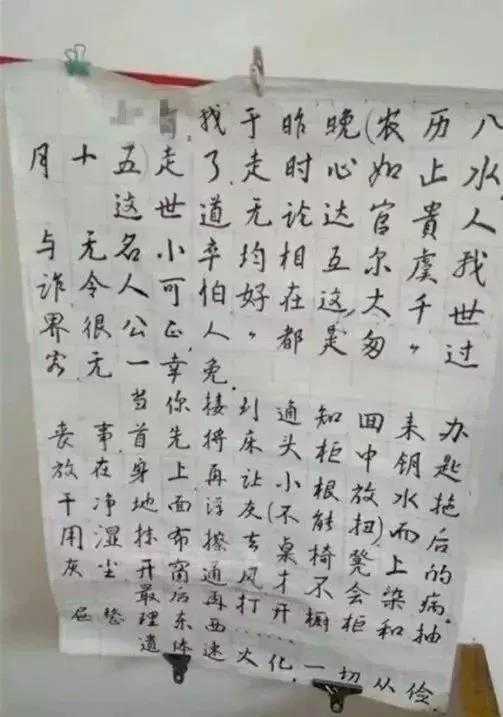 找于昨晚(农历八
月十五)走了,走时心如止水
这世道无论达官贵人
与无名小卒均相互尔虞我
诈令人可怕好在这大千世
界很公正,人〃都是匆〃过
客无一幸免.
当你接到通知回来办
丧事首先将床头柜中钥匙
放在身上再让小根放水拖
干净地面浮灰(不能扭)而后
用湿抹布擦去桌椅凳上的
灰尘开窗通风才不会染病.
最后再打开橱柜和抽
屉整理东西......
遗体速火化,一切从俭.